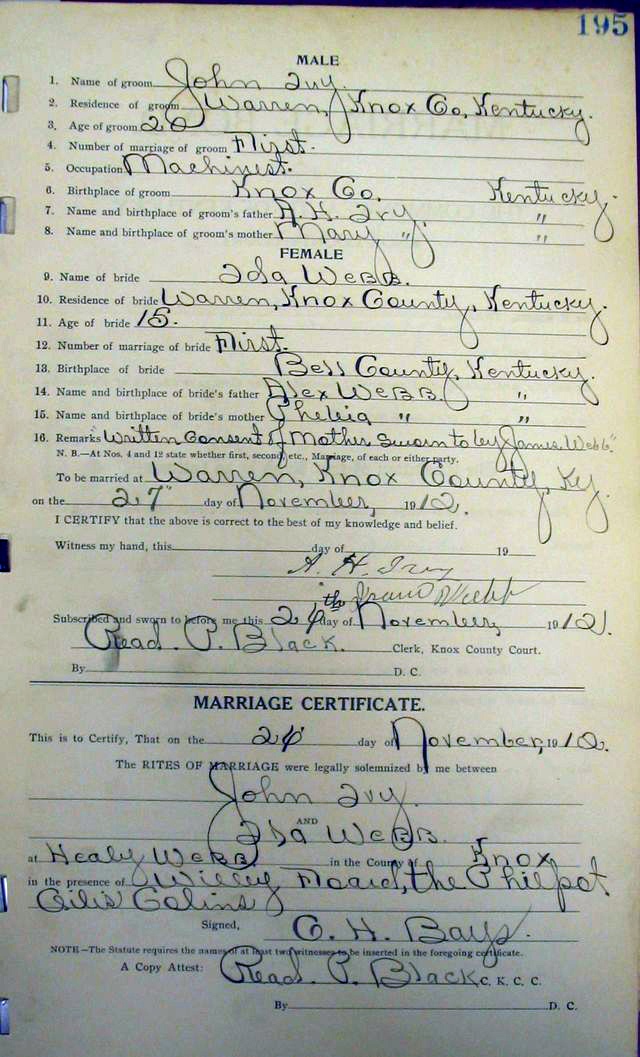 195
MALE
1. Name of groom John Ivy.
2. Residence of groom Warren, Knox Co, Kentucky.
3. Age of groom 20
4. Number of marriage of groom First.
5. Occupation Machinest.
6. Birthplace of groom Knox Co. Kentucky.
7. Name and birthplace of groom's father A. H. Ivy. "
8. Name and birthplace of groom's mother Mary " "
FEMALE
9. Name of bride Ida Webb.
10. Residence of bride Warren, Knox County, Kentucky.
11. Age of bride 15.
12. Number of marriage of bride First.
13. Birthplace of bride Bell County, Kentucky.
14. Name and birthplace of bride's father Alex Webb. "
15. Name and birthplace of bride's mother " "
16. Remarks Written Consent of Mother Sworn to by James Webb"
N. B.—At Nos. 4 and 12 state whether first, second, etc., Marriage, of each or either party.
To be married at Warren, Knox County, Ky.
on the 27" day of November, 1912.
I CERTIFY that the above is correct to the best of my knowledge and belief.
Witness my hand, this day of 19
A. H. Ivy
Webb
Subscribed and sworn to before me this 26 day of November, 1912.
Read. P. Black. Clerk, Knox County Court.
By D. C.
MARRIAGE CERTIFICATE.
This is to Certify, That on the 26 day of November, 1912.
The RITES OF MARRIAGE were legally solemnized by me between
John Ivy.
AND
Ida Webb.
at Healy Webb in the County of Knox
in the presence of Willey the Philpot
Signed, G. H. Bays.
NOTE—The Statute requires the names of at least two witnesses to be inserted in the foregoing certificate.
A Copy Attest: Read. P. Black C. K. C. C.
By D. C.